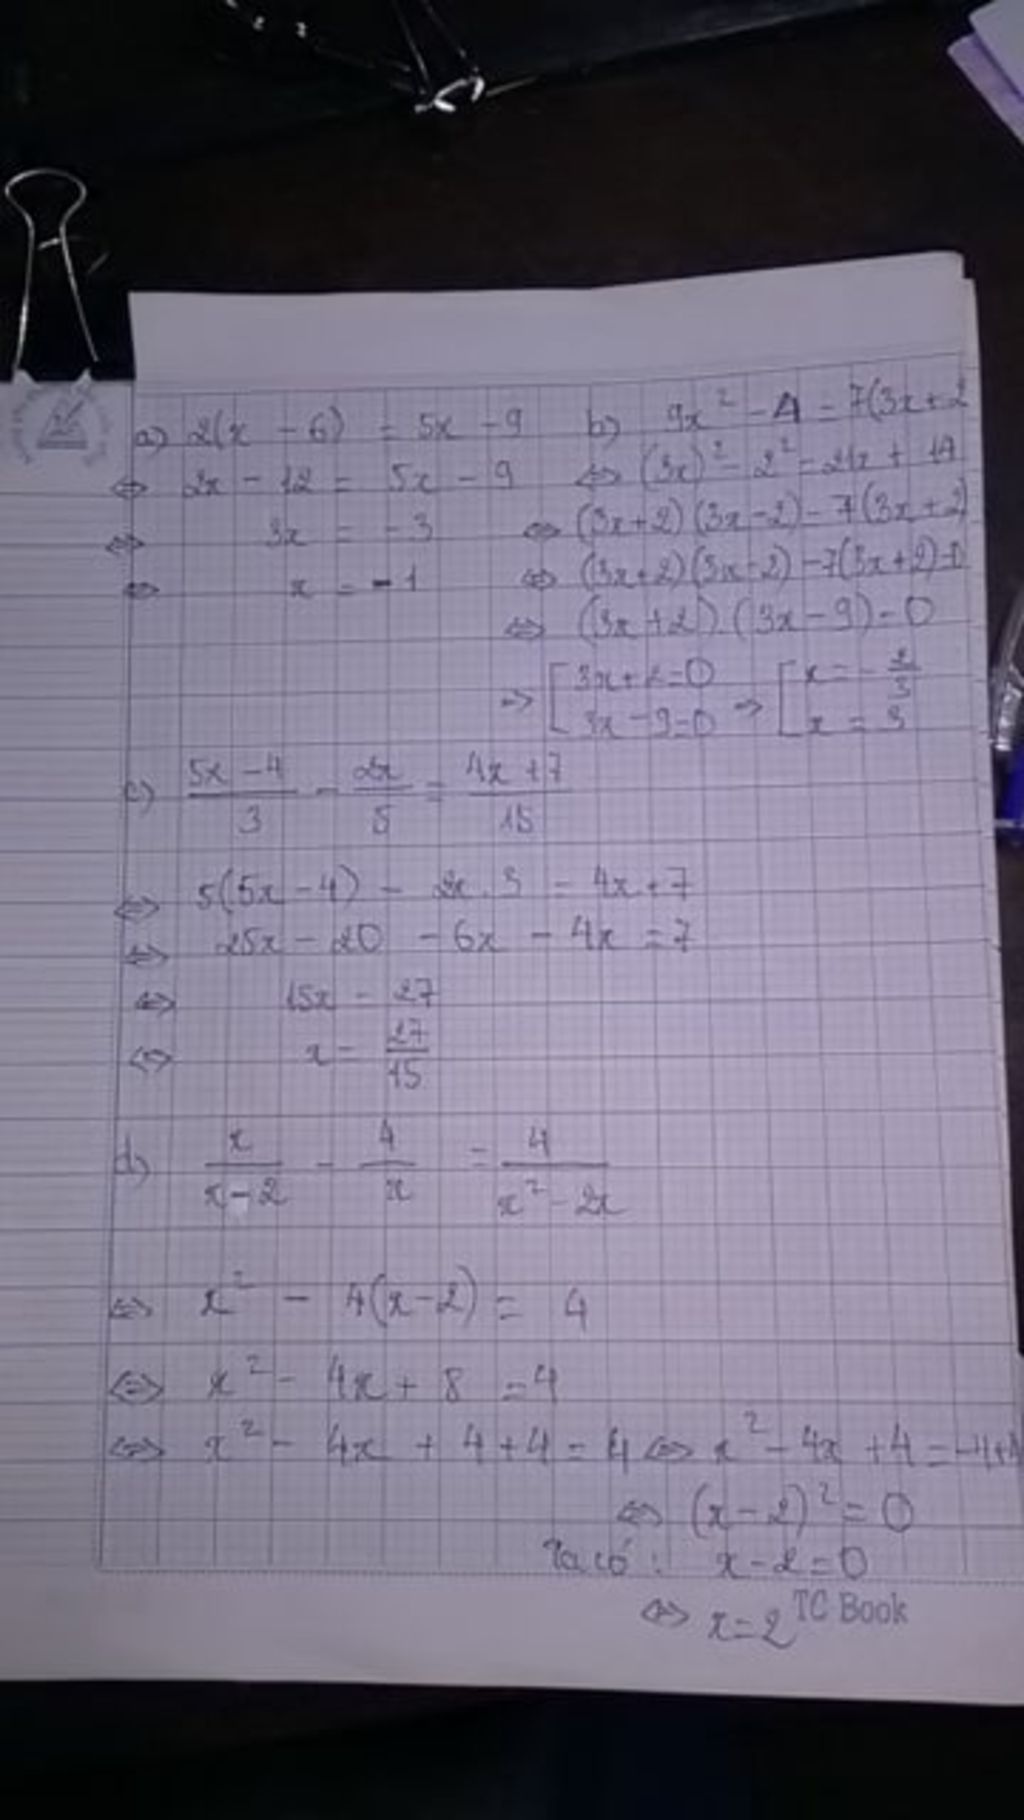 a) 2(x - 6) = 5x - 9
⇔ 2x - 12 = 5x - 9
⇔ 3x = -3
⇔ x = -1
b) 9x² - 4 = 7(3x+2
⇔ (3x)² - 2² = 21x + 14
⇔ (3x+2)(3x-2) = 7(3x+2)
⇔ (3x+2)(3x-2) - 7(3x+2)=0
⇔ (3x+2).(3x-9)=0
⇒ [3x+2=0 ⇒ [x = -2/3
3x-9=0 x = 3
c) (5x-4)/3 - 2x/5 = (4x+7)/15
⇔ 5(5x-4) - 2x.3 = 4x+7
⇔ 25x - 20 - 6x - 4x = 7
⇔ 15x = 27
⇔ x = 27/15
d) x/(x-2) - 4/x = 4/(x²-2x)
⇔ x² - 4(x-2) = 4
⇔ x² - 4x + 8 = 4
⇔ x² - 4x + 4+4 = 4 ⇔ x² - 4x + 4 = -4+4
⇔ (x-2)² = 0
Ta có: x-2=0
⇔ x=2
TC Book